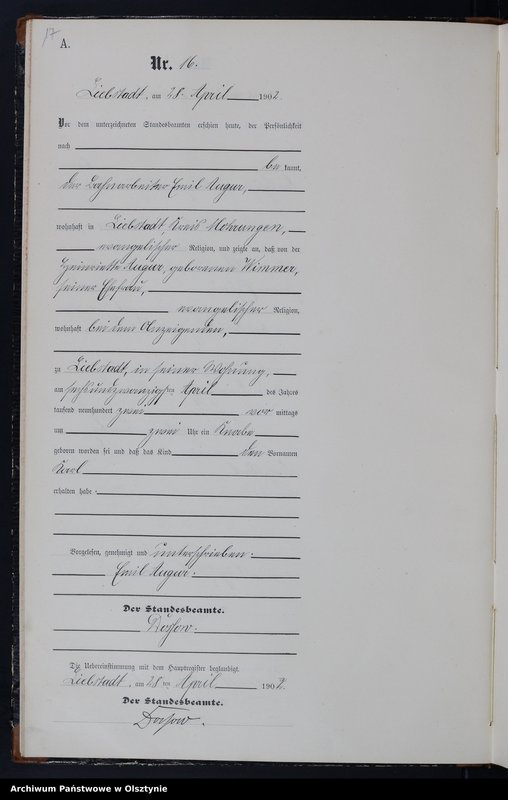 17
A.
Nr. 16.
Liebstadt, am 28ten April 1902
Vor dem unterzeichneten Standesbeamten erschien heute, der Persönlichkeit
nach
be kannt,
der Emil
wohnhaft in Liebstadt, Kreis Mohrungen,
evangelischer Religion, und zeigte an, daß von der
Henriette geborenen Wimmer,
seiner Ehefrau,
evangelischer Religion,
wohnhaft bei dem Anzeigenden,
zu Liebstadt, in seiner Wohnung,
am sechsundzwanzigsten April des Jahres
tausend neunhundert zwei vor mittags
um zwei Uhr ein Knabe
geboren worden sei und daß das Kind den Vornamen
Karl
erhalten habe.
Vorgelesen, genehmigt und unterschrieben.
Emil
Der Standesbeamte.
Die Uebereinstimmung mit dem Hauptregister beglaubigt.
Liebstadt, am 28ten April 1902.
Der Standesbeamte.
Archiwum Państwowe w Olsztynie